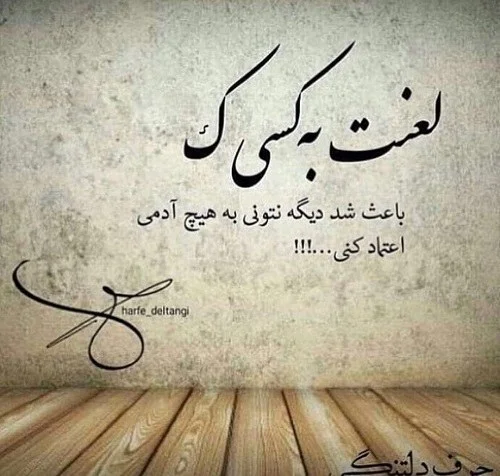 لعنت به کسی ک
باعث شد دیگه نتونی به هیچ آدمی
اعتماد کنی...!!!
harfe_deltangi
حرف دلتنگی